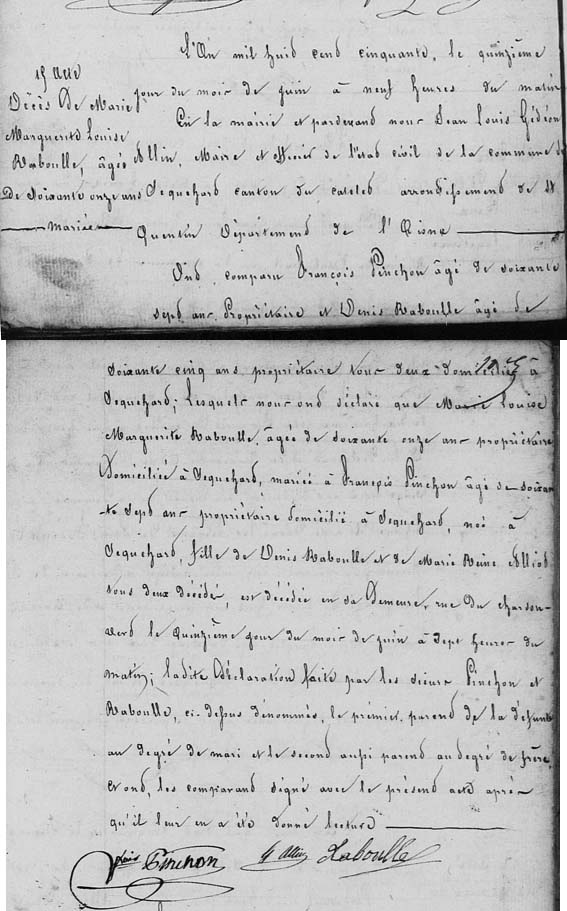 15 Acte
Décès De Marie
Marguerite Louise
Raboulle, âgée
De Soixante onze ans
mariée
L'An mil huid cend cinquante, le quinzième
jour du mois de juin à neuf heures du matin
En la mairie et pardevand nous Jean Louis Gédéon
Allin, Maire et officier de l'état civil de la commune de
Sequehard canton du catelet arrondissement de St
Quentin Département de l'Aisne
Ond comparu François Pinchon âgé de soixante
sepd ans Propriétaire et Denis Raboulle âgé de
soixante cinq ans propriétaire tous deux domiciliés à
Sequehard; Lesquels nous ond déclaré que Marie Louise
Marguerite Raboulle, âgée de soixante onze ans propriétaire
Domiciliée à Sequehard, mariée à François Pinchon âgé de soixan
te Sepd ans propriétaire domicilié à Sequehard, née à
Sequehard, fille de Denis Raboulle et de Marie Reine Alliot
tous deux décédé, est décédée en sa Demeure, rue du
verd le quinzième jour du mois de juin à sept heures du
matin; ladite Déclaration faite par les sieurs Pinchon et
Raboulle, ci-dessus dénommés, le prémier parend de la défunte
au degré de mari et le second aussi parend au degré de frère,
et ond, les comparand signé avec le présend acte apré-
qu'il leur en a été donné lecture
Pinchon Allin Raboulle